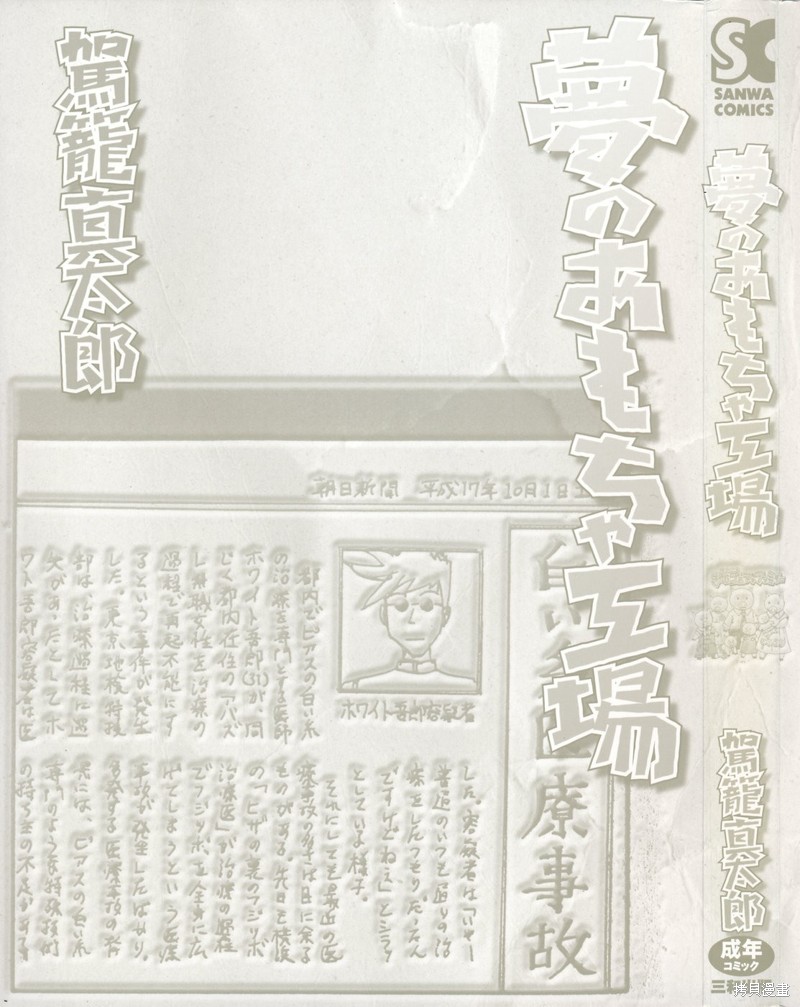 駕籠真太郎
夢のおもちゃ工場
SANWA
COMICS
夢のおもちゃ工場
駕籠真太郎
成年
コミック
朝日新聞 平成17年10月1日土
白い糸医療事故
ホワイト吾郎容疑者
都内でピアスの白い糸
の治療を専門とする医師
ホワイト吾郎(31)が、同
じく都内在住の一バズ
し無職女性を治療の
過程で再起不能にす
るという事件が発生
した。東京地検特捜
部は、治療過程に過
失があったとしてホ
ワイト吾郎容疑者は医
した。容疑者は「いやー
普通のいつも通りの治
療をしたつもりだったん
ですけどねえ」とシラ
としている様子。
それにしても最近の医
療事故の多さは目に余る
ものがある。先日も横浜
の「ヒザの裏のフジツボ
治療医」が治療の過程
でフジツボを全身に広
げてしまうという医療
事故が発生したばかり。
多発する医療事故の背
景には、ピアスの白い糸
専門のような特殊技術
の持ち主の不足がある
拷貝漫畫